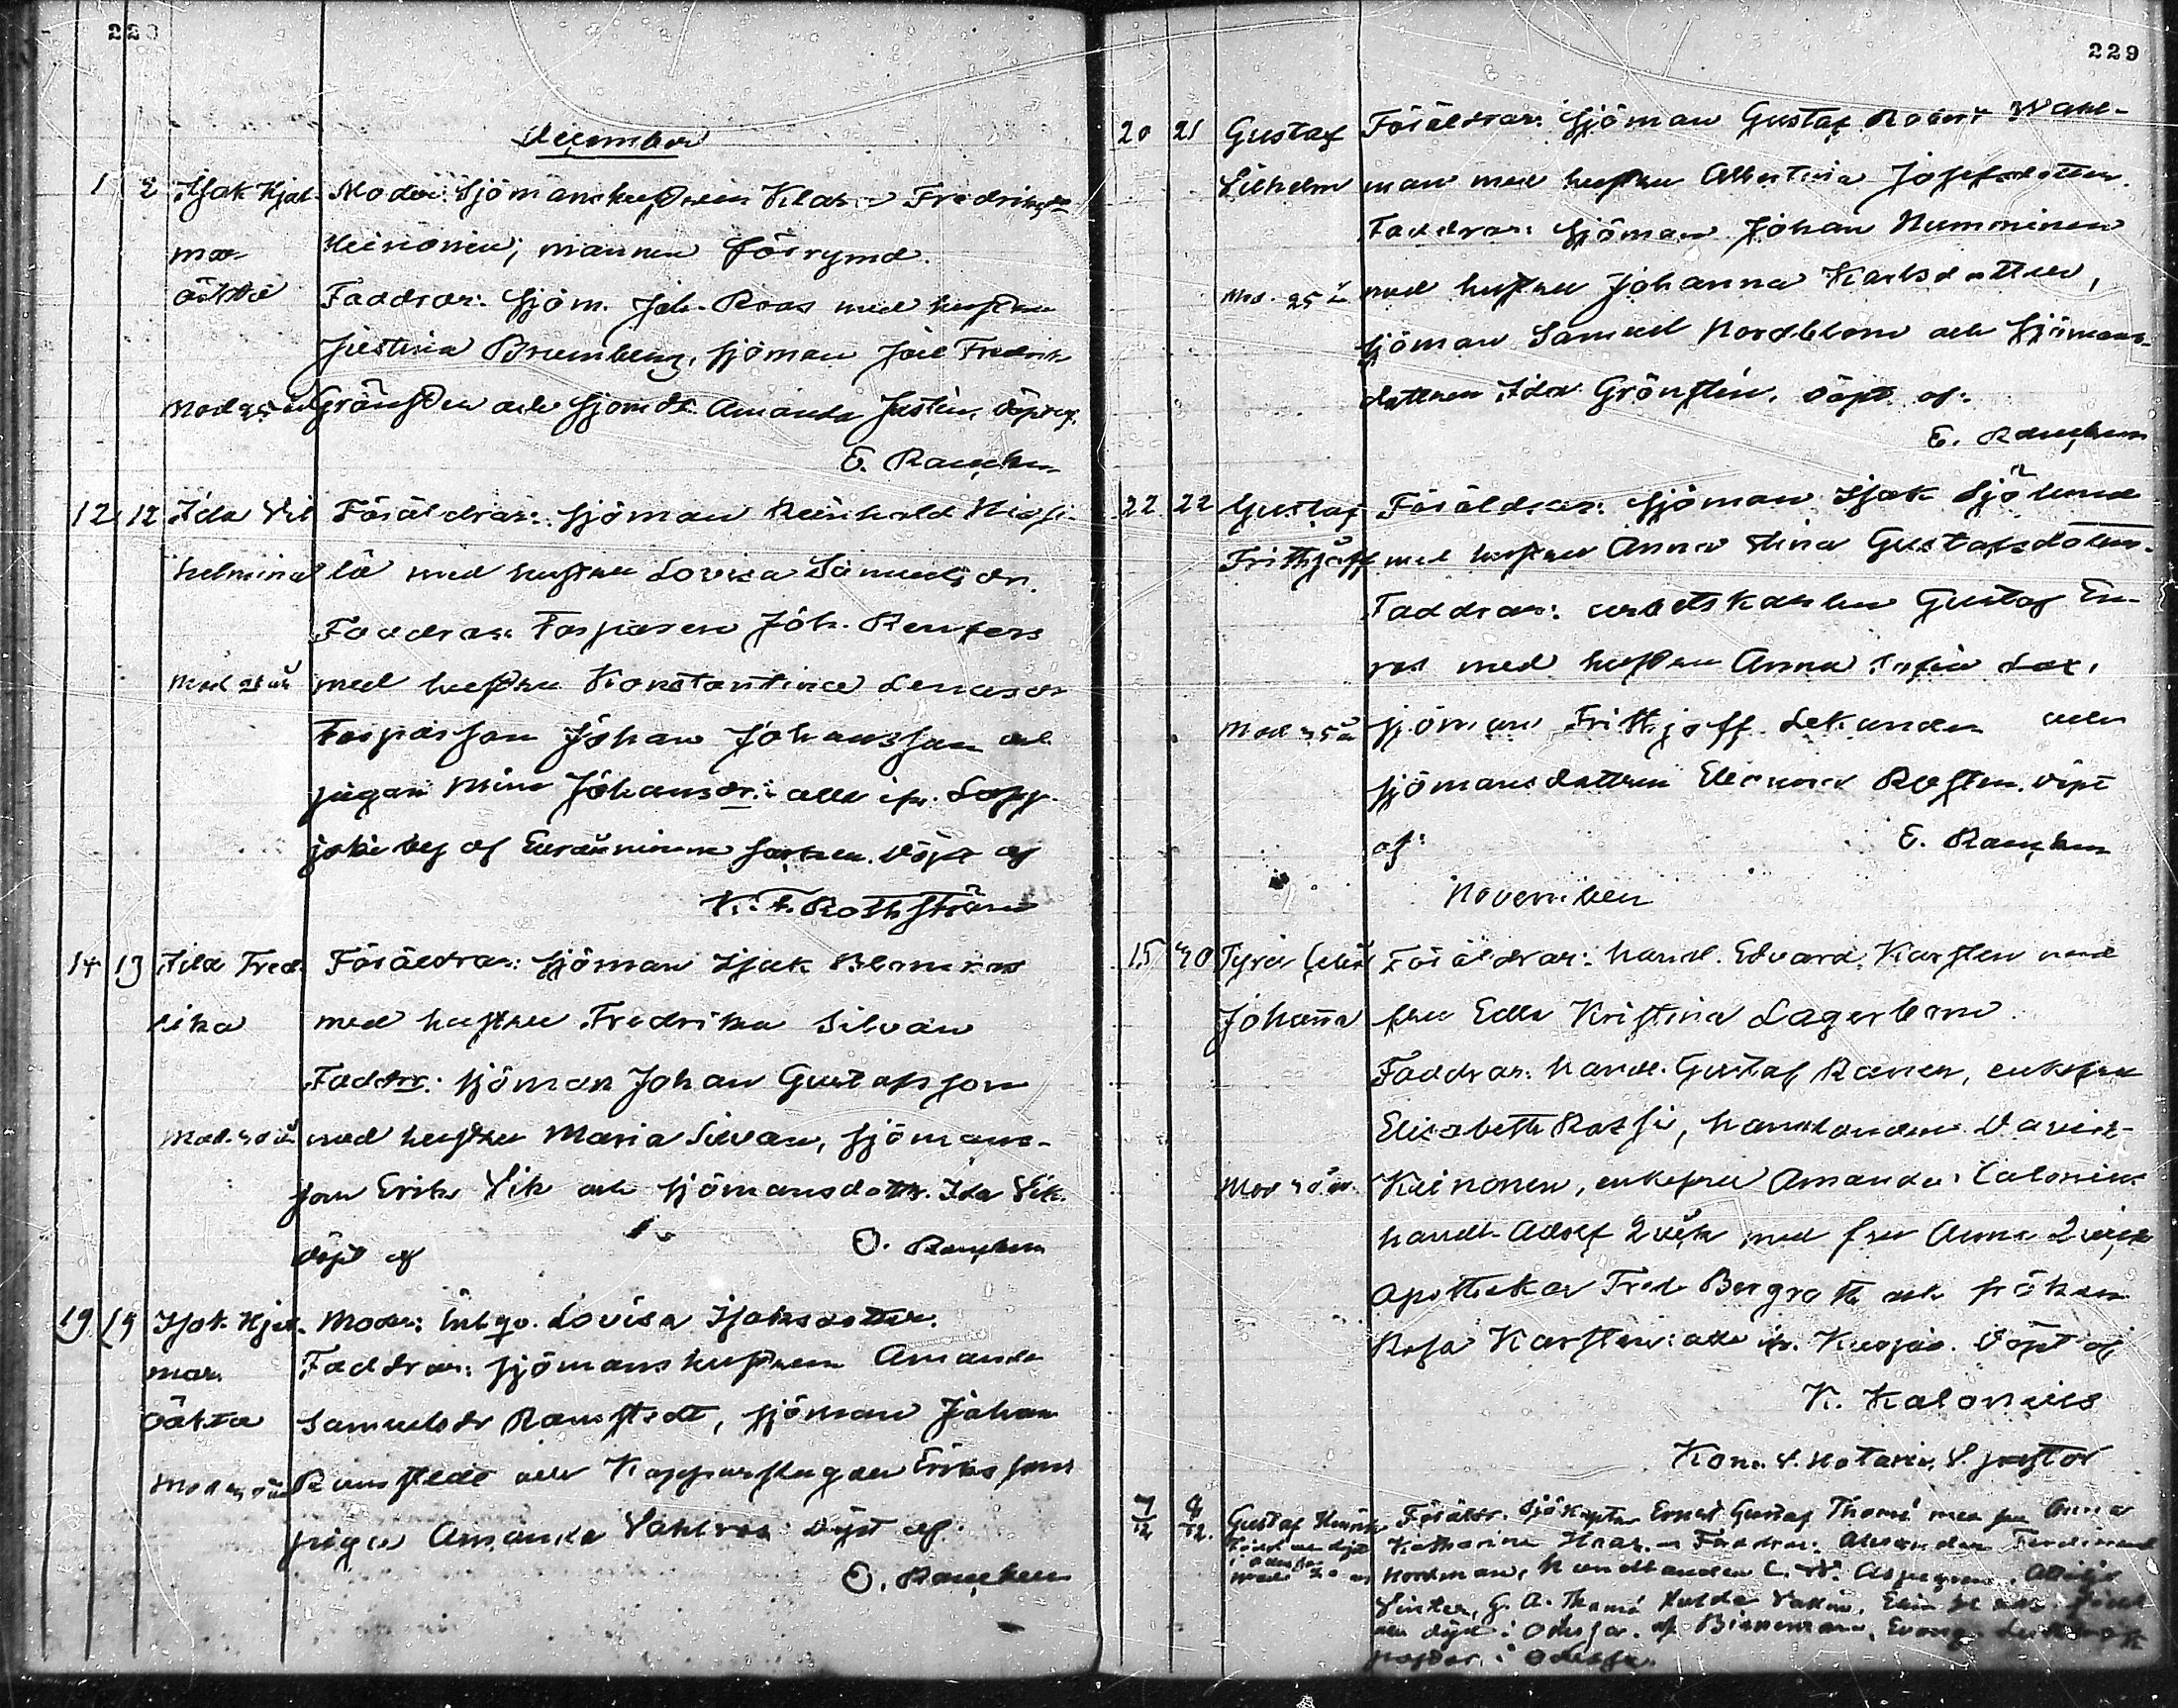 228
December
1 2 Isak Hjal- Moder: Sjömanshustrun Klara Fredriksdr
mar Heinonen; mannen förrymd.
oäkta Faddrar: Sjöm. Joh. Roos med hustru
Justina Brumberg, sjöman Joel Fredrik
Mod 25 år Grönsten och sjöm.dr Amanda Justin. Döpt af.
E. Rancken
12 12 Ida Vil Föräldrar: Sjöman Reinhold
helmina lä med hustru Lovisa Samuelsdr.
Faddrar: Torparen Joh. Renfors
Mod år med hustru Konstantina
Torparson Johan Johansson och
pigan Mina Johansdr: alla ifr. Lapp-
joki by af Euraåminne socken. Döpt af
K. F. Rothström
14 13 Ida Fred- Föräldrar: Sjöman Isak Blomroos
rika med hustru Fredrika Silvan
Faddrr: Sjöman Johan Gustafsson
Mod. 40 år med hustru Maria Silvan, sjömans-
son Erik Vik och sjömansdottr. Ida Vik.
Döpt af O. Rancken
19 19 Isak Hjal- Moder: Inhqv. Lovisa Isaksdotter.
mar. Faddrar: Sjömanshustrun Amanda
oäkta Samuelsdr Ramstedt, sjöman Johan
Mod år Ramstedt och Kopparslagaren Erikssons
piga Amanda Vahlroos Döpt af.
O. Rancken
229
20 21 Gustaf Föräldrar: Sjöman Gustaf Robert Wahl-
Vilhelm man med hustru Albertina Josefsdotter.
Faddrar: Sjöman Johan Numminen
Mod. 25 år med hustru Johanna Karlsdotter,
sjöman Samuel Nordblom och sjömans-
dottren Ida Grönsten. Döpt af:
E. Rancken
22 22 Gustaf Föräldrar: Sjöman Isak Sjölund
Frithjoff med hustru Anna Stina Gustafsdotter.
Faddrar: arbetskarlen Gustaf En-
ros med hustru Anna Sofia Lax,
Mod 35 år sjöman Frithjoff Lekander och
sjömansdottren Eleonora Rosten. Döpt
af: E. Rancken
November
15 30 Tyra Celia Föräldrar: handl. Edvard Karsten med
Johanna fru Edla Kristina Lagerbom.
Faddrar: handl. Gustaf Ranin, enkefru
Elisabeth Rossi, handlanden David
Mod 40 år. Keinonen, enkefru Amanda Calonius
handl. Adolf Qvick med fru Anna Qvick
Apothekar Fred. Bergroth och fröken
Rosa Karsten: alla ifr. Kuopio. Döpt af
K. Kalonius
Kons. V. Notarie, V. pastor
7/12 9/12. Gustaf Henrik Föräldr. Sjökapten Ernst Gustaf Thomé med fru Anna
Född och döpt Katharina Haar. Faddrar: Alexander Ferdinand
i Odessa Nordman, handlanden C. W. Aspegren,
Mod. år Winter, G. A. Thomé Hulda Född
och döpt i Odessa. af Bienemann, Evang. Luthersk
pastor i Odessa.